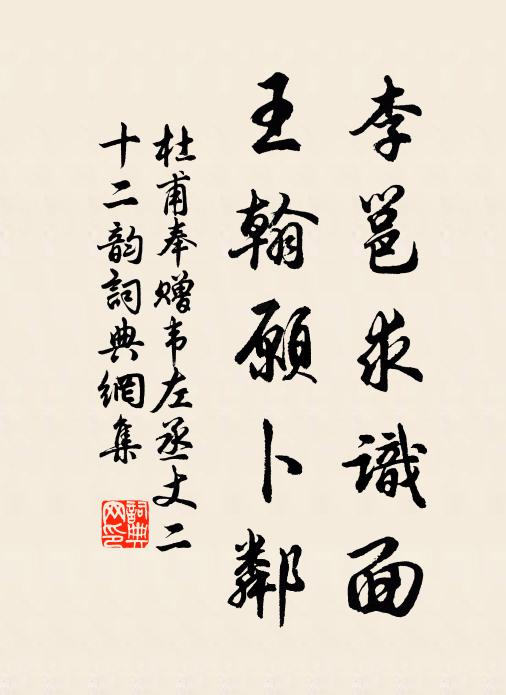 李邕求識面
王翰願卜鄰
杜甫奉赠韦左丞丈二
十二韵詞典網集
詞典网印